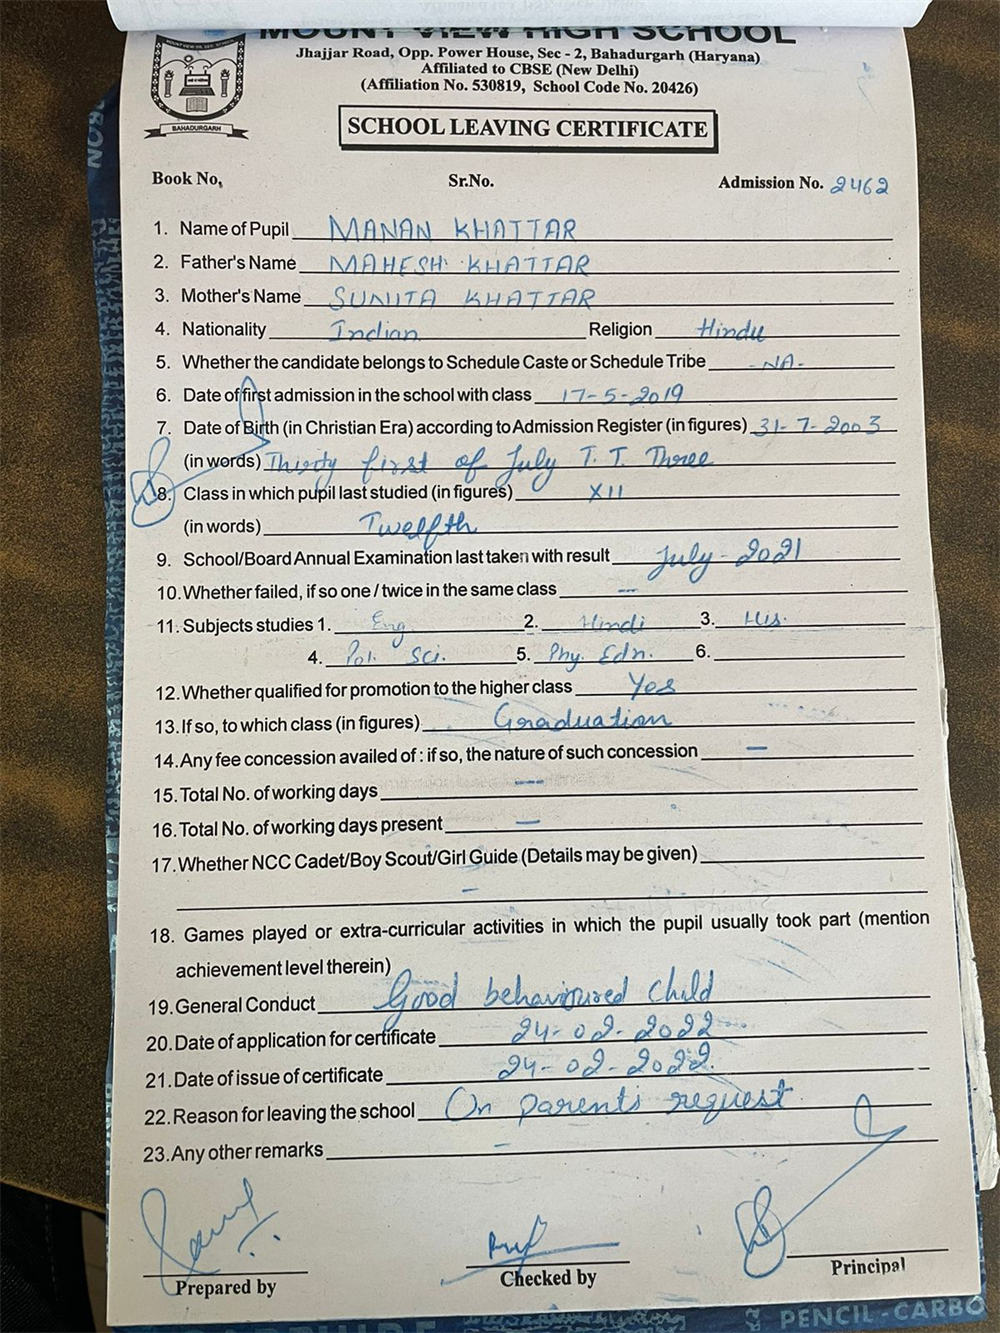 MOUNT VIEW HIGH SCHOOL
Jhajjar Road, Opp. Power House, Sec - 2, Bahadurgarh (Haryana)
Affiliated to CBSE (New Delhi)
(Affiliation No. 530819, School Code No. 20426)
BAHADURGARH
SCHOOL LEAVING CERTIFICATE
Book No, Sr.No. Admission No. 2462
1. Name of Pupil MANAN KHATTAR
2. Father's Name MAHESH KHATTAR
3. Mother's Name SUNITA KHATTAR
4. Nationality Indian Religion Hindu
5. Whether the candidate belongs to Schedule Caste or Schedule Tribe -NA-
6. Date of first admission in the school with class 17-5-2019
7. Date of Birth (in Christian Era) according to Admission Register (in figures) 31-7-2003
(in words) Thirty first of July T. T. Three
8. Class in which pupil last studied (in figures) XII
(in words) Twelfth
9. School/Board Annual Examination last taken with result July-2021
10. Whether failed, if so one / twice in the same class —
11. Subjects studies 1. Eng. 2. Hindi 3. His.
4. Pol. Sci. 5. Phy. Edn. 6.
12. Whether qualified for promotion to the higher class Yes
13. If so, to which class (in figures) Graduation
14. Any fee concession availed of : if so, the nature of such concession —
15. Total No. of working days —
16. Total No. of working days present —
17. Whether NCC Cadet/Boy Scout/Girl Guide (Details may be given)
-
18. Games played or extra-curricular activities in which the pupil usually took part (mention
achievement level therein)
19. General Conduct Good behavioured child
20. Date of application for certificate 24-02-2022
21. Date of issue of certificate 24-02-2022.
22. Reason for leaving the school On parents request
23. Any other remarks -
Prepared by Checked by Principal
PENCIL-CARBO